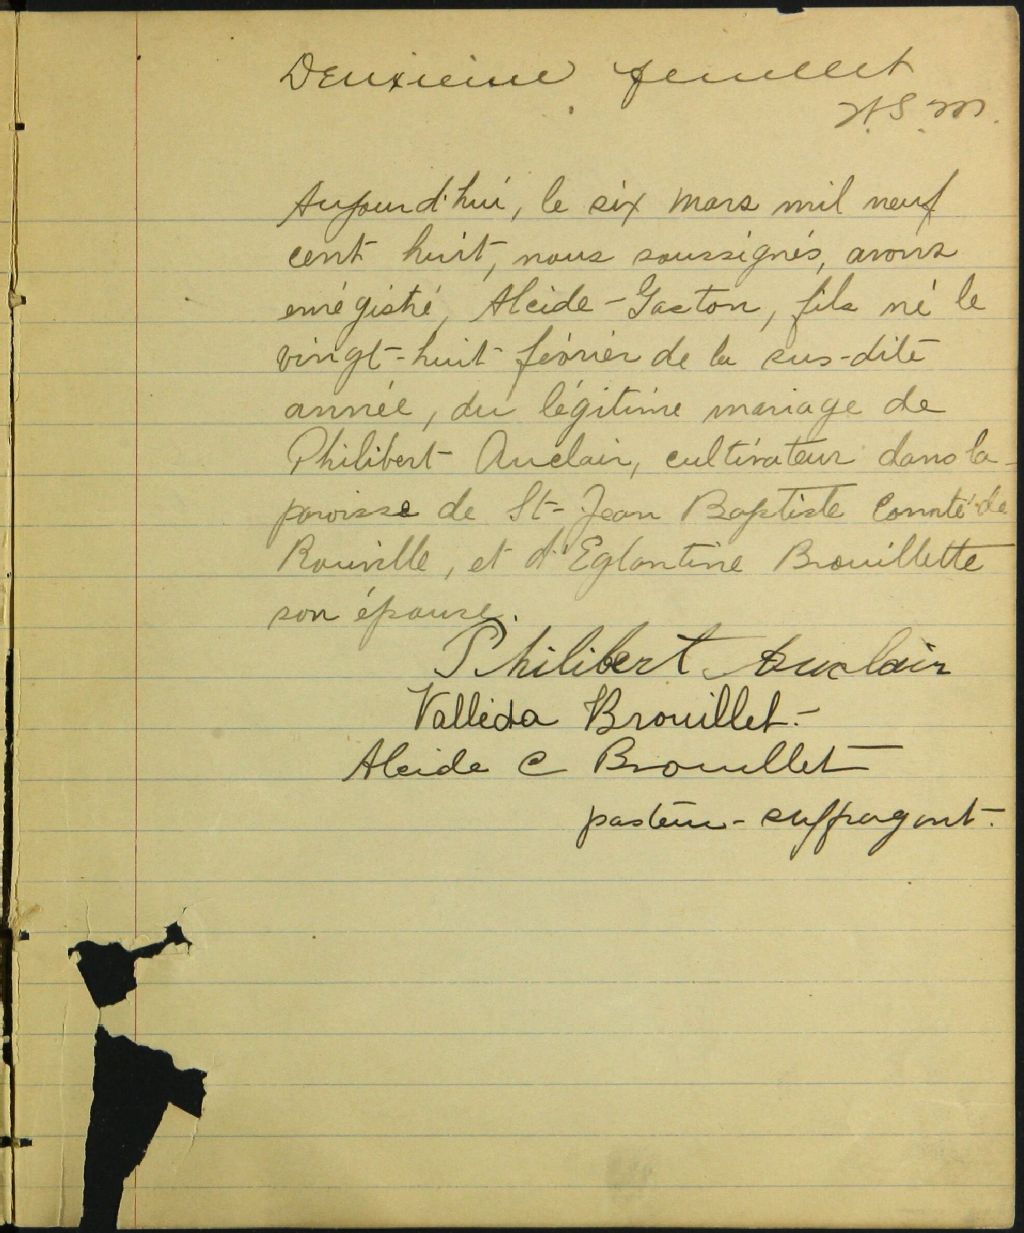 Deuxième feuillet
H. S. M.
Aujourd'hui, le six mars mil neuf
cent huit, nous soussignés, avons
enrégistré, Alcide-Gaston, fils né le
vingt-huit février de la sus-dite
année, du légitime mariage de
Philibert Auclair, cultivateur dans la
paroisse de St-Jean Baptiste Comté de
Rouville, et d'Eglantine Brouillette
son épouse.
Philibert Auclair
Valléda Brouillet.-
Alcide C Brouillet
pasteur-suffragant.